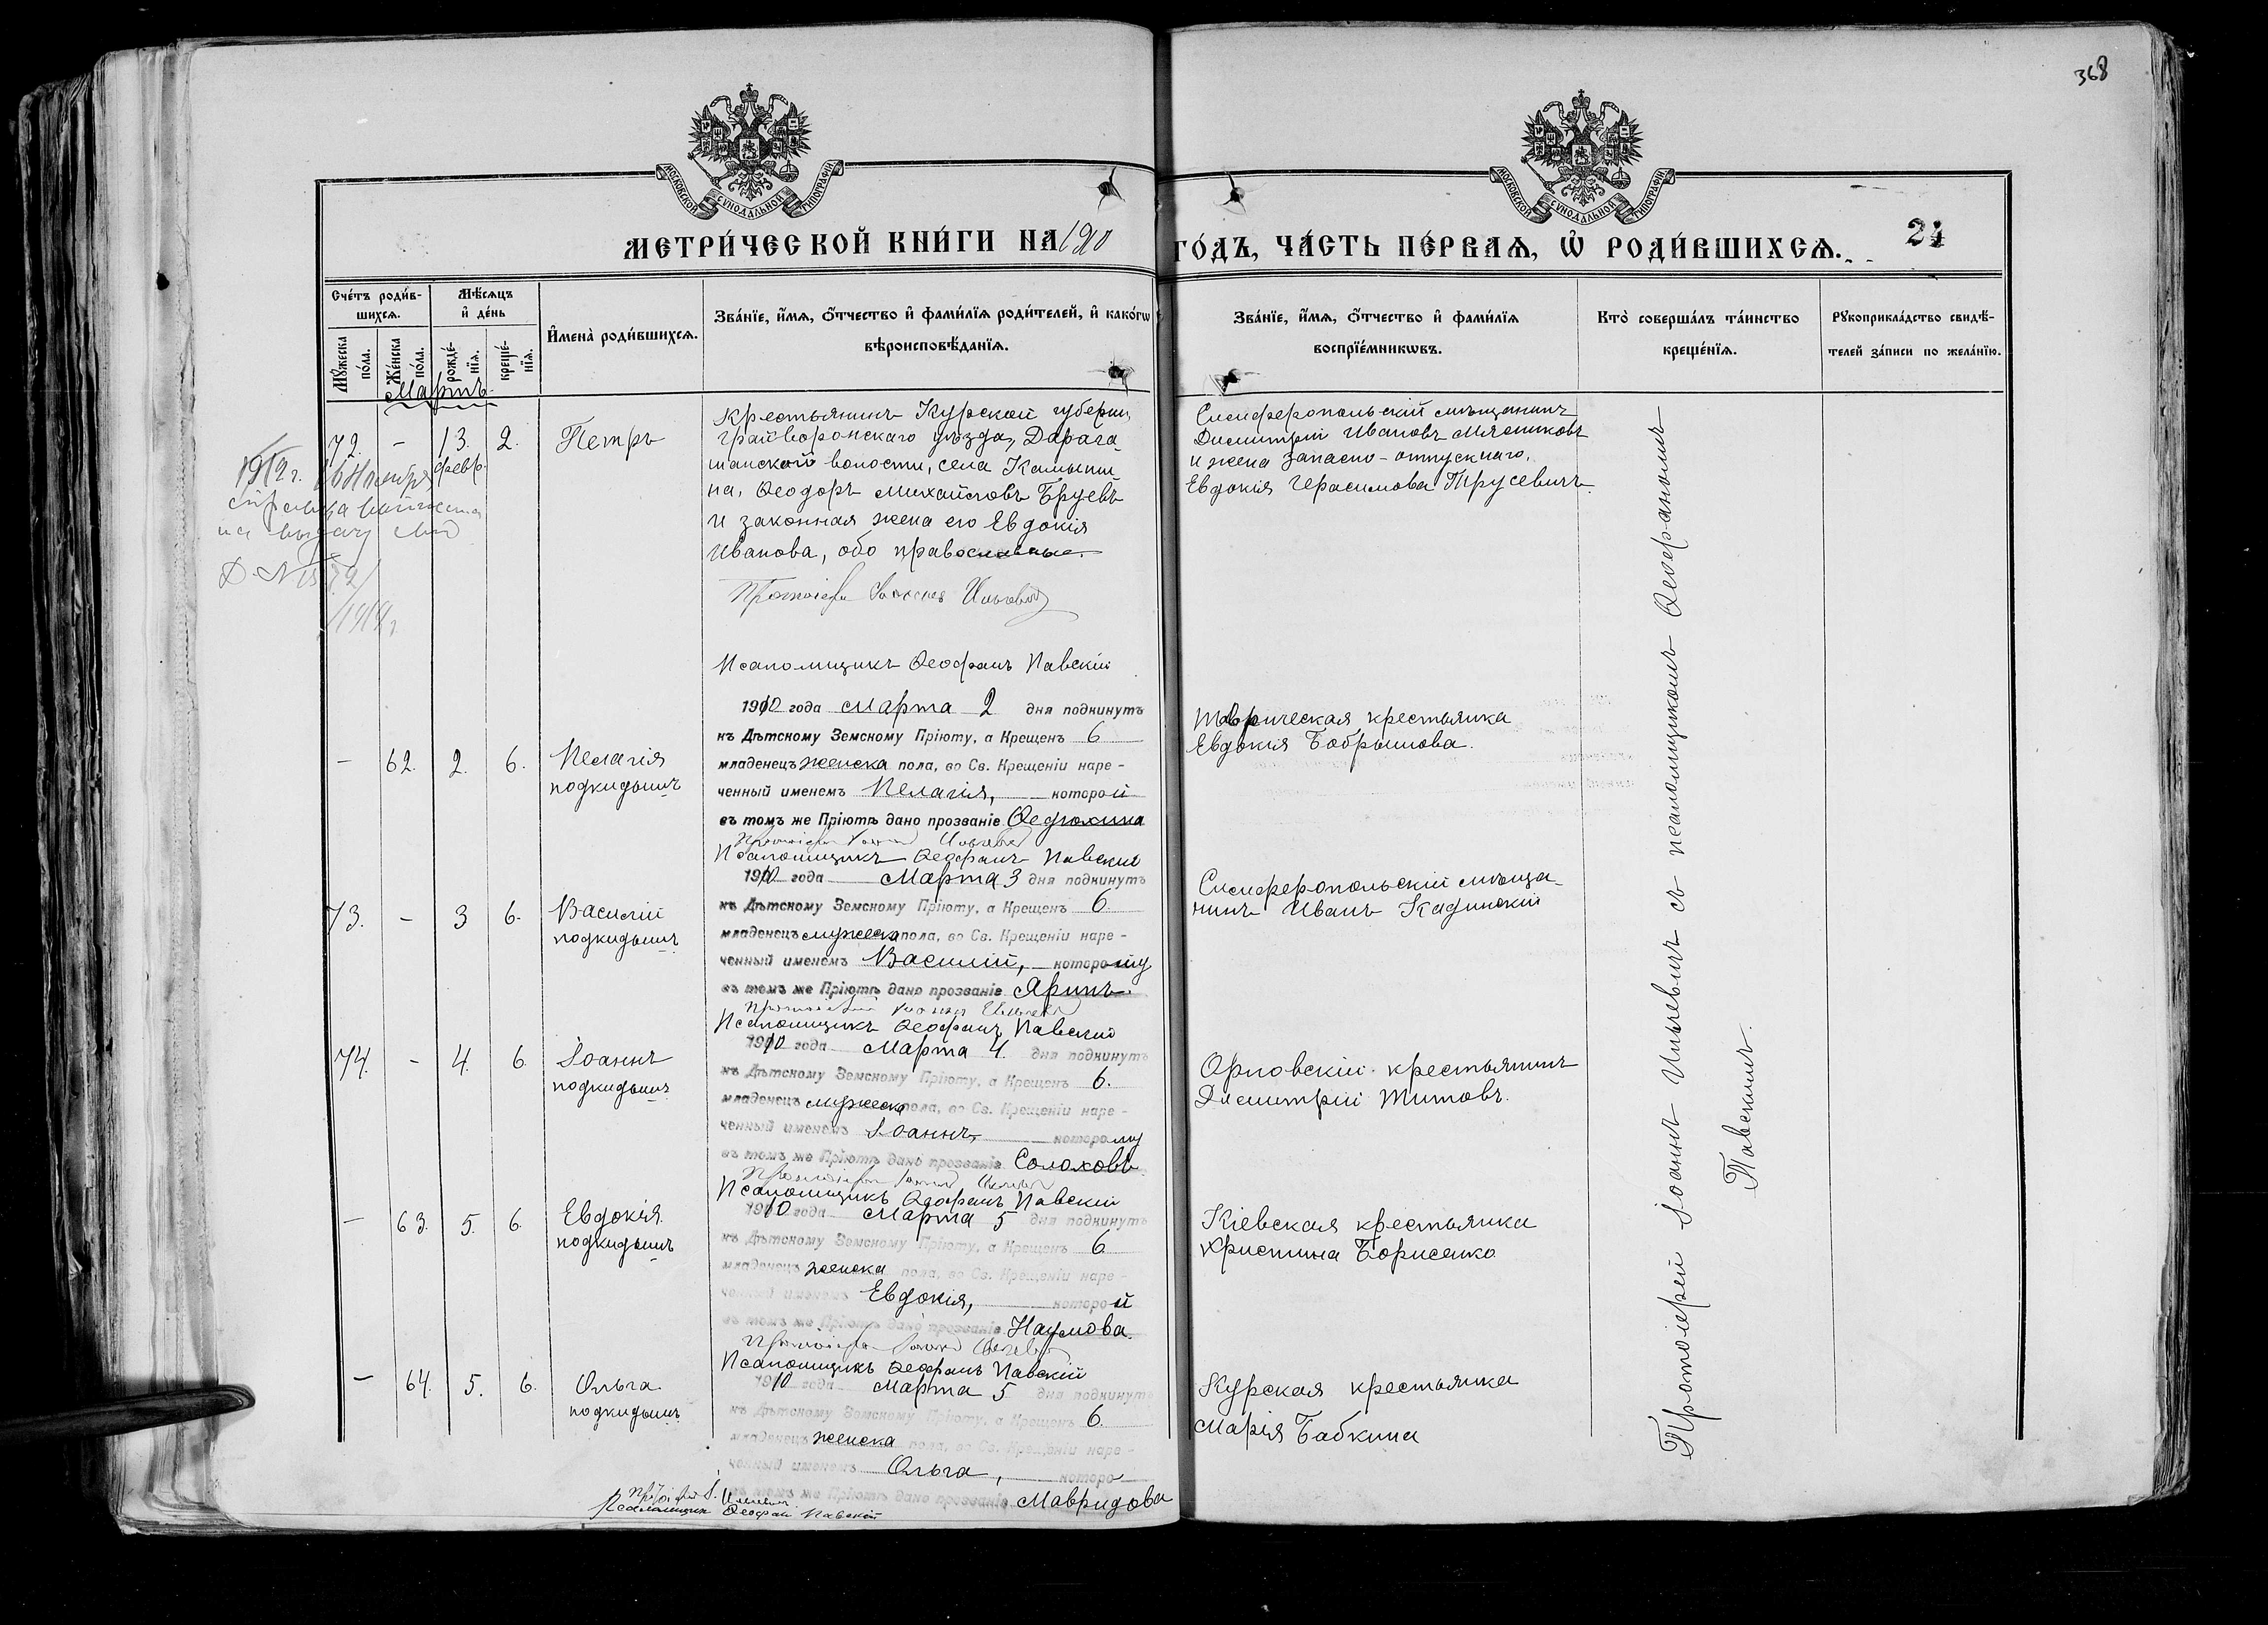 368
МОСКОВСКОЙ СѴНОДАЛЬНОЙ ТИПОГРАФІИ
МОСКОВСКОЙ СѴНОДАЛЬНОЙ ТИПОГРАФІИ
МЕТРИ́ЧЕСКОЙ КНИ́ГИ НА 1910
ГО́ДЪ, ЧА́СТЬ ПЕ́РВАѦ, Ѽ РОДИ́ВШИХСѦ.
24
Сче́тъ роди́в-
шихсѧ.
Мѣ́сѧцъ
и҆ де́нь
Мꙋ́жеска
по́ла.
Же́нска
по́ла.
рожде́-
нїѧ.
креще́-
нїѧ.
И҆мена̀ роди́вшихсѧ.
Зва́нїе, и҆́мѧ, ѻ҆́тчество и҆ фами́лїѧ роди́телей, и҆ како́гѡ
вѣроисповѣ́данїѧ.
Зва́нїе, и҆́мѧ, ѻ҆́тчество и҆ фами́лїѧ
воспрїе́мникѡвъ.
Кто̀ соверша́лъ та́инство
креще́нїѧ.
Рꙋкоприкла́дство свидѣ́-
телей за́писи по жела́нїю.
Мартъ
72. - 13. 2. Петръ
февр.
Крестьянинъ Курской губерніи,
Грайворонскаго уѣзда, Дорога-
щанской волости, села Камыши-
на, Ѳеодоръ Михайловъ Бруевъ
и законная жена его Евдокія
Иванова, обо православные.
Протоіерей Іоаннъ Ильевичъ
Псаломщикъ Ѳеофанъ Павскій
Симферопольскій мѣщанинъ
Димитрій Ивановъ Мясниковъ
и жена запасно-отпускнаго,
Евдокія Герасимова Трусевичъ.
1912 г.
на выдачу
1912 г.
- 62. 2. 6. Пелагія
подкидышъ
1910 года Марта 2 дня подкинутъ
къ Дѣтскому Земскому Пріюту, а Крещенъ 6
младенецъ женска пола, во Св. Крещеніи наре-
ченный именемъ Пелагія, которой
въ томъ же Пріютѣ дано прозваніе Ѳедюхина
Протоіерей Іоаннъ Ильевичъ
Псаломщикъ Ѳеофанъ Павскій
Таврическая крестьянка
Евдокія Бобрышова.
73. - 3 6. Василій
подкидышъ
1910 года Марта 3 дня подкинутъ
къ Дѣтскому Земскому Пріюту, а Крещенъ 6
младенецъ мужеска пола, во Св. Крещеніи наре-
ченный именемъ Василій, которому
въ томъ же Пріютѣ дано прозваніе Яринъ.
Протоіерей Іоаннъ Ильевичъ
Псаломщикъ Ѳеофанъ Павскій
Симферопольскій мѣща-
нинъ Иванъ Кадинскій
74. - 4. 6. Іоаннъ
подкидышъ
1910 года Марта 4. дня подкинутъ
къ Дѣтскому Земскому Пріюту, а Крещенъ 6.
младенецъ мужеска пола, во Св. Крещеніи наре-
ченный именемъ Іоаннъ, которому
въ томъ же Пріютѣ дано прозваніе Солоховъ
Протоіерей Іоаннъ Ильевичъ
Псаломщикъ Ѳеофанъ Павскій
Орловскій крестьянинъ
Димитрій Титовъ.
- 63. 5. 6. Евдокія
подкидышъ
1910 года Марта 5 дня подкинутъ
къ Дѣтскому Земскому Пріюту, а Крещенъ 6
младенецъ женска пола, во Св. Крещеніи наре-
ченный именемъ Евдокія, которой
въ томъ же Пріютѣ дано прозваніе Наумова.
Протоіерей Іоаннъ Ильевичъ
Псаломщикъ Ѳеофанъ Павскій
Кіевская крестьянка
Христина Борисенко
- 64. 5. 6. Ольга
подкидышъ
1910 года Марта 5 дня подкинутъ
къ Дѣтскому Земскому Пріюту, а Крещенъ 6.
младенецъ женска пола, во Св. Крещеніи наре-
ченный именемъ Ольга, которо
въ томъ же Пріютѣ дано прозваніе Мавридова
Протоіерей І. Ильевичъ.
Псаломщикъ Ѳеофанъ Павскій
Курская крестьянка
Марія Бабкина
Протоіерей Іоаннъ Ильевичъ съ псаломщикомъ Ѳеофаномъ
Павскимъ.